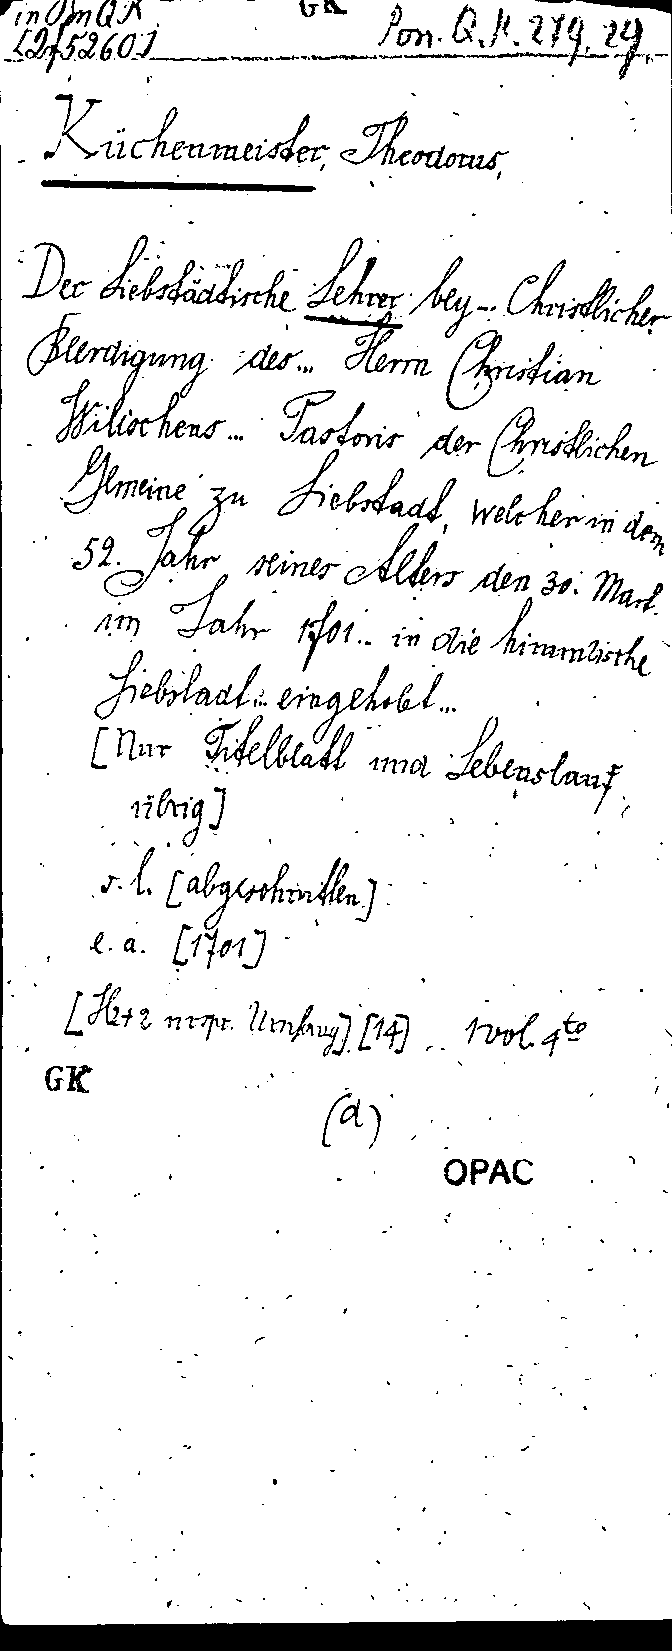 GK Pon. Q.K. 279, 29.
[2f5260]
Küchenmeister, Theodorus,
Der Liebstädtische Lehrer bey... Christlicher
Beerdigung des... Herrn Christian
Wilischens... Pastoris der Christlichen
Gemeine zu Liebstadt, welcher in dem
52. Jahr seines Alters den 30. Mart.
im Jahr 1701... in die himmlische
Liebstadt... eingeholet...
[Nur Titelblatt und Lebenslauf
übrig]
s. l. [abgeschnitten]
e. a. [1701]
[H2+2 urspr. Umfang] [14] 1 vol. 4to
GK
(d)
OPAC